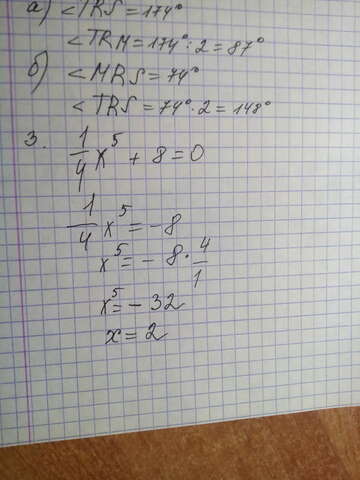 а) <TRS = 174°
<TRM = 174° : 2 = 87°
б) <MRS = 74°
<TRS = 74° · 2 = 148°
3. 1/4 x⁵ + 8 = 0
1/4 x⁵ = -8
x⁵ = - 8 · 4/1
x⁵ = - 32
x = 2